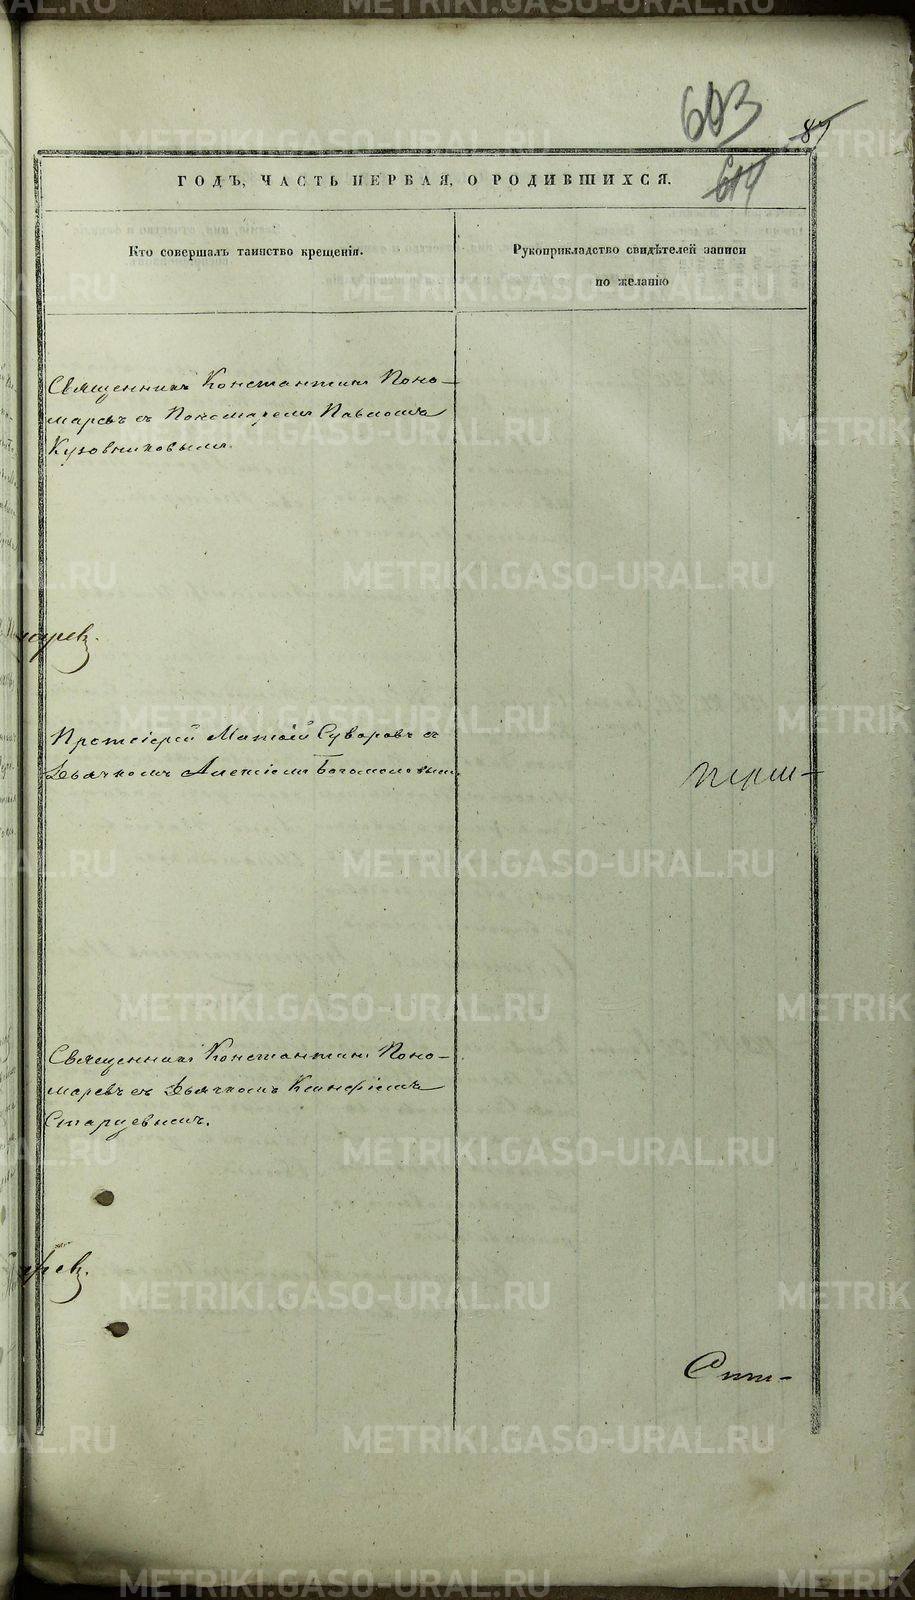 603
87
614
ГОДЪ, ЧАСТЬ ПЕРВАЯ, О РОДИВШИХСЯ.
Кто совершалъ таинство крещенія.
Рукоприкладство свидѣтелей записи
по желанію
Священникъ Константинъ Поно-
маревъ съ Пономаремъ Павломъ
Кузовниковымъ.
Протоіерей Матвій Суворовъ съ
Дьячкомъ Алексіемъ Богомоловымъ.
Священникъ Константинъ Поно-
маревъ съ Дьячкомъ
Старцевымъ.
METRIKI.GASO-URAL.RU